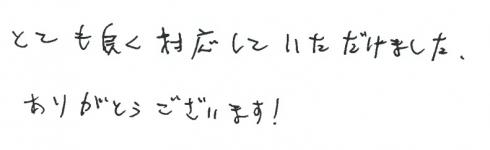 とても良く対応していただけました.
ありがとうございます!